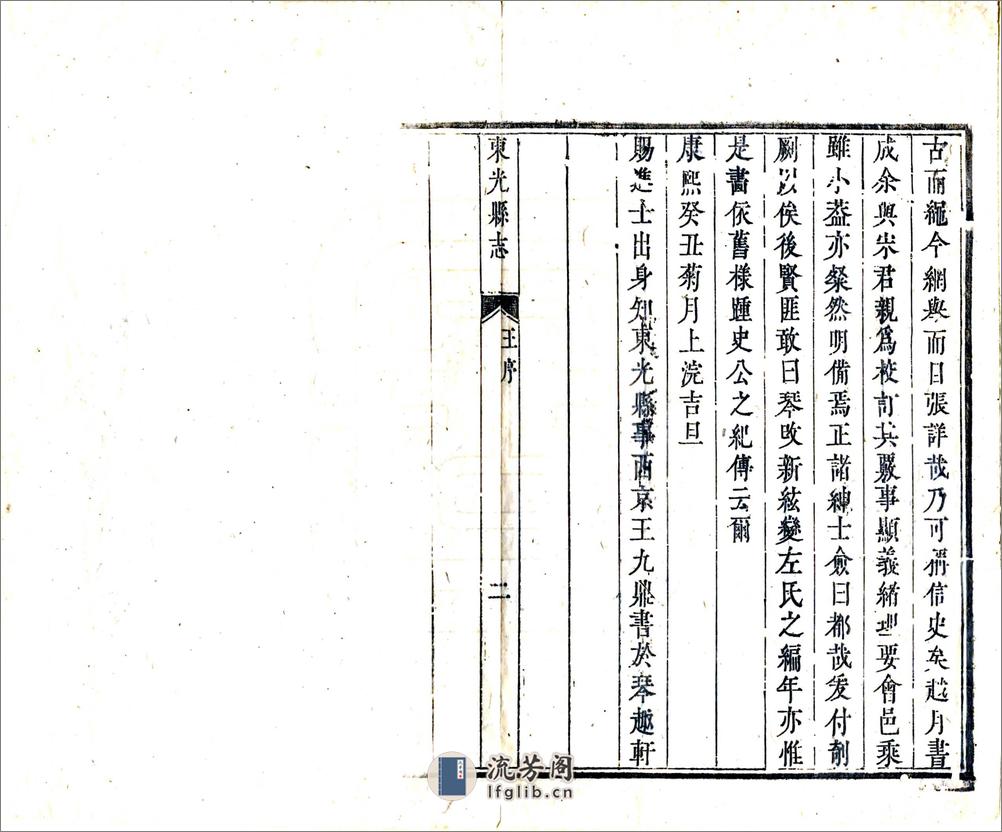 古而繩今綱舉而目張詳哉乃可稱信史矣越月書
成余與米君親為校訂其覈事顯義緒理要會邑乘
雖小蓋亦粲然明備焉正諸紳士僉曰都哉爰付剞
劂以俟後賢匪敢曰琴改新絃變左氏之編年亦惟
是書依舊樣踵史公之紀傳云爾
康熙癸丑菊月上浣吉旦
賜進士出身知東光縣事西京王九鼎書於琴趣軒
東光縣志
王序
二
流芳阁
lfglib.cn